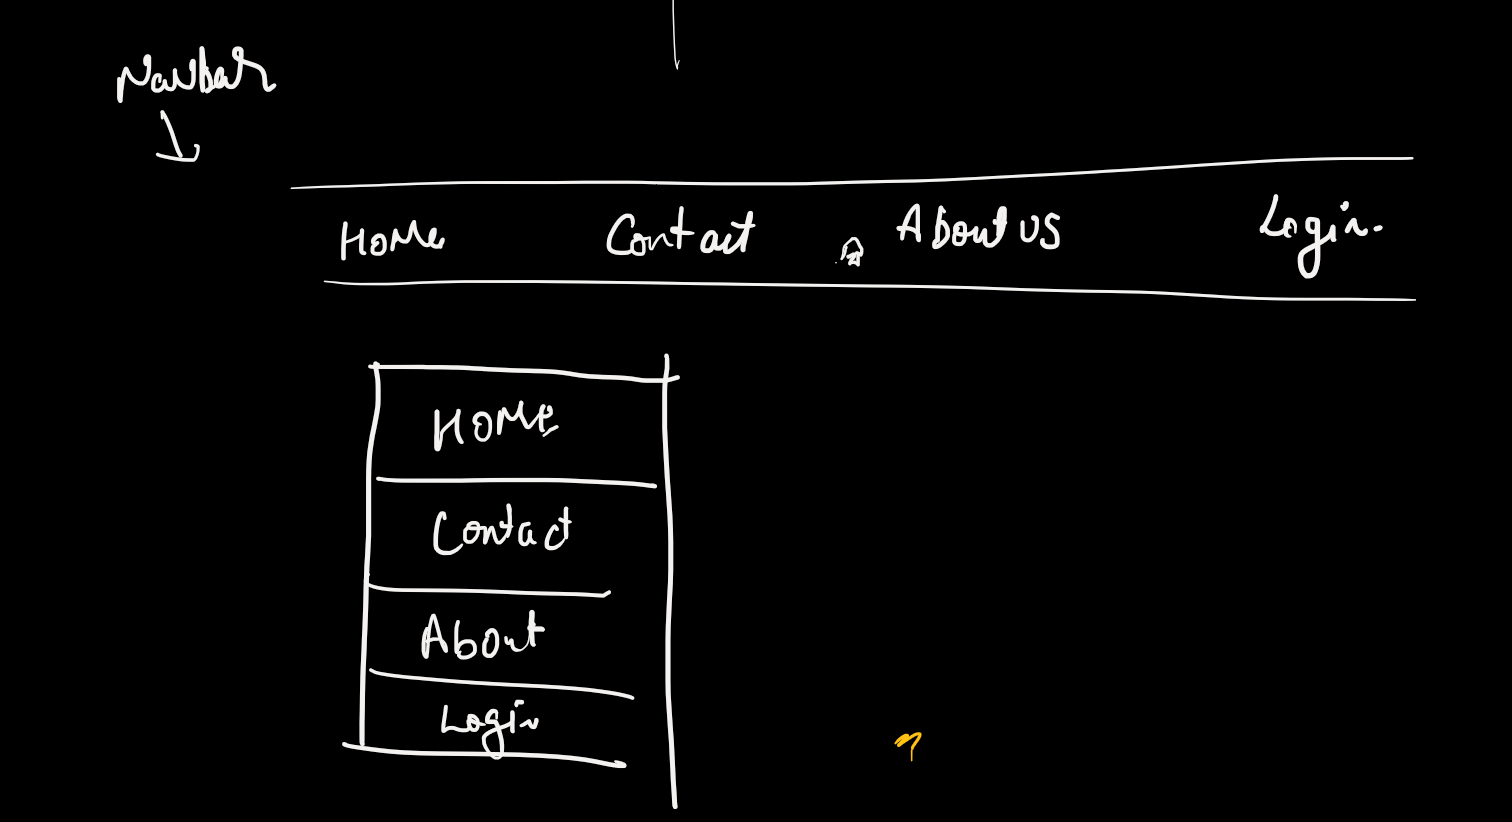 Navbar
Home Contact About US Login
Home
Contact
About
Login